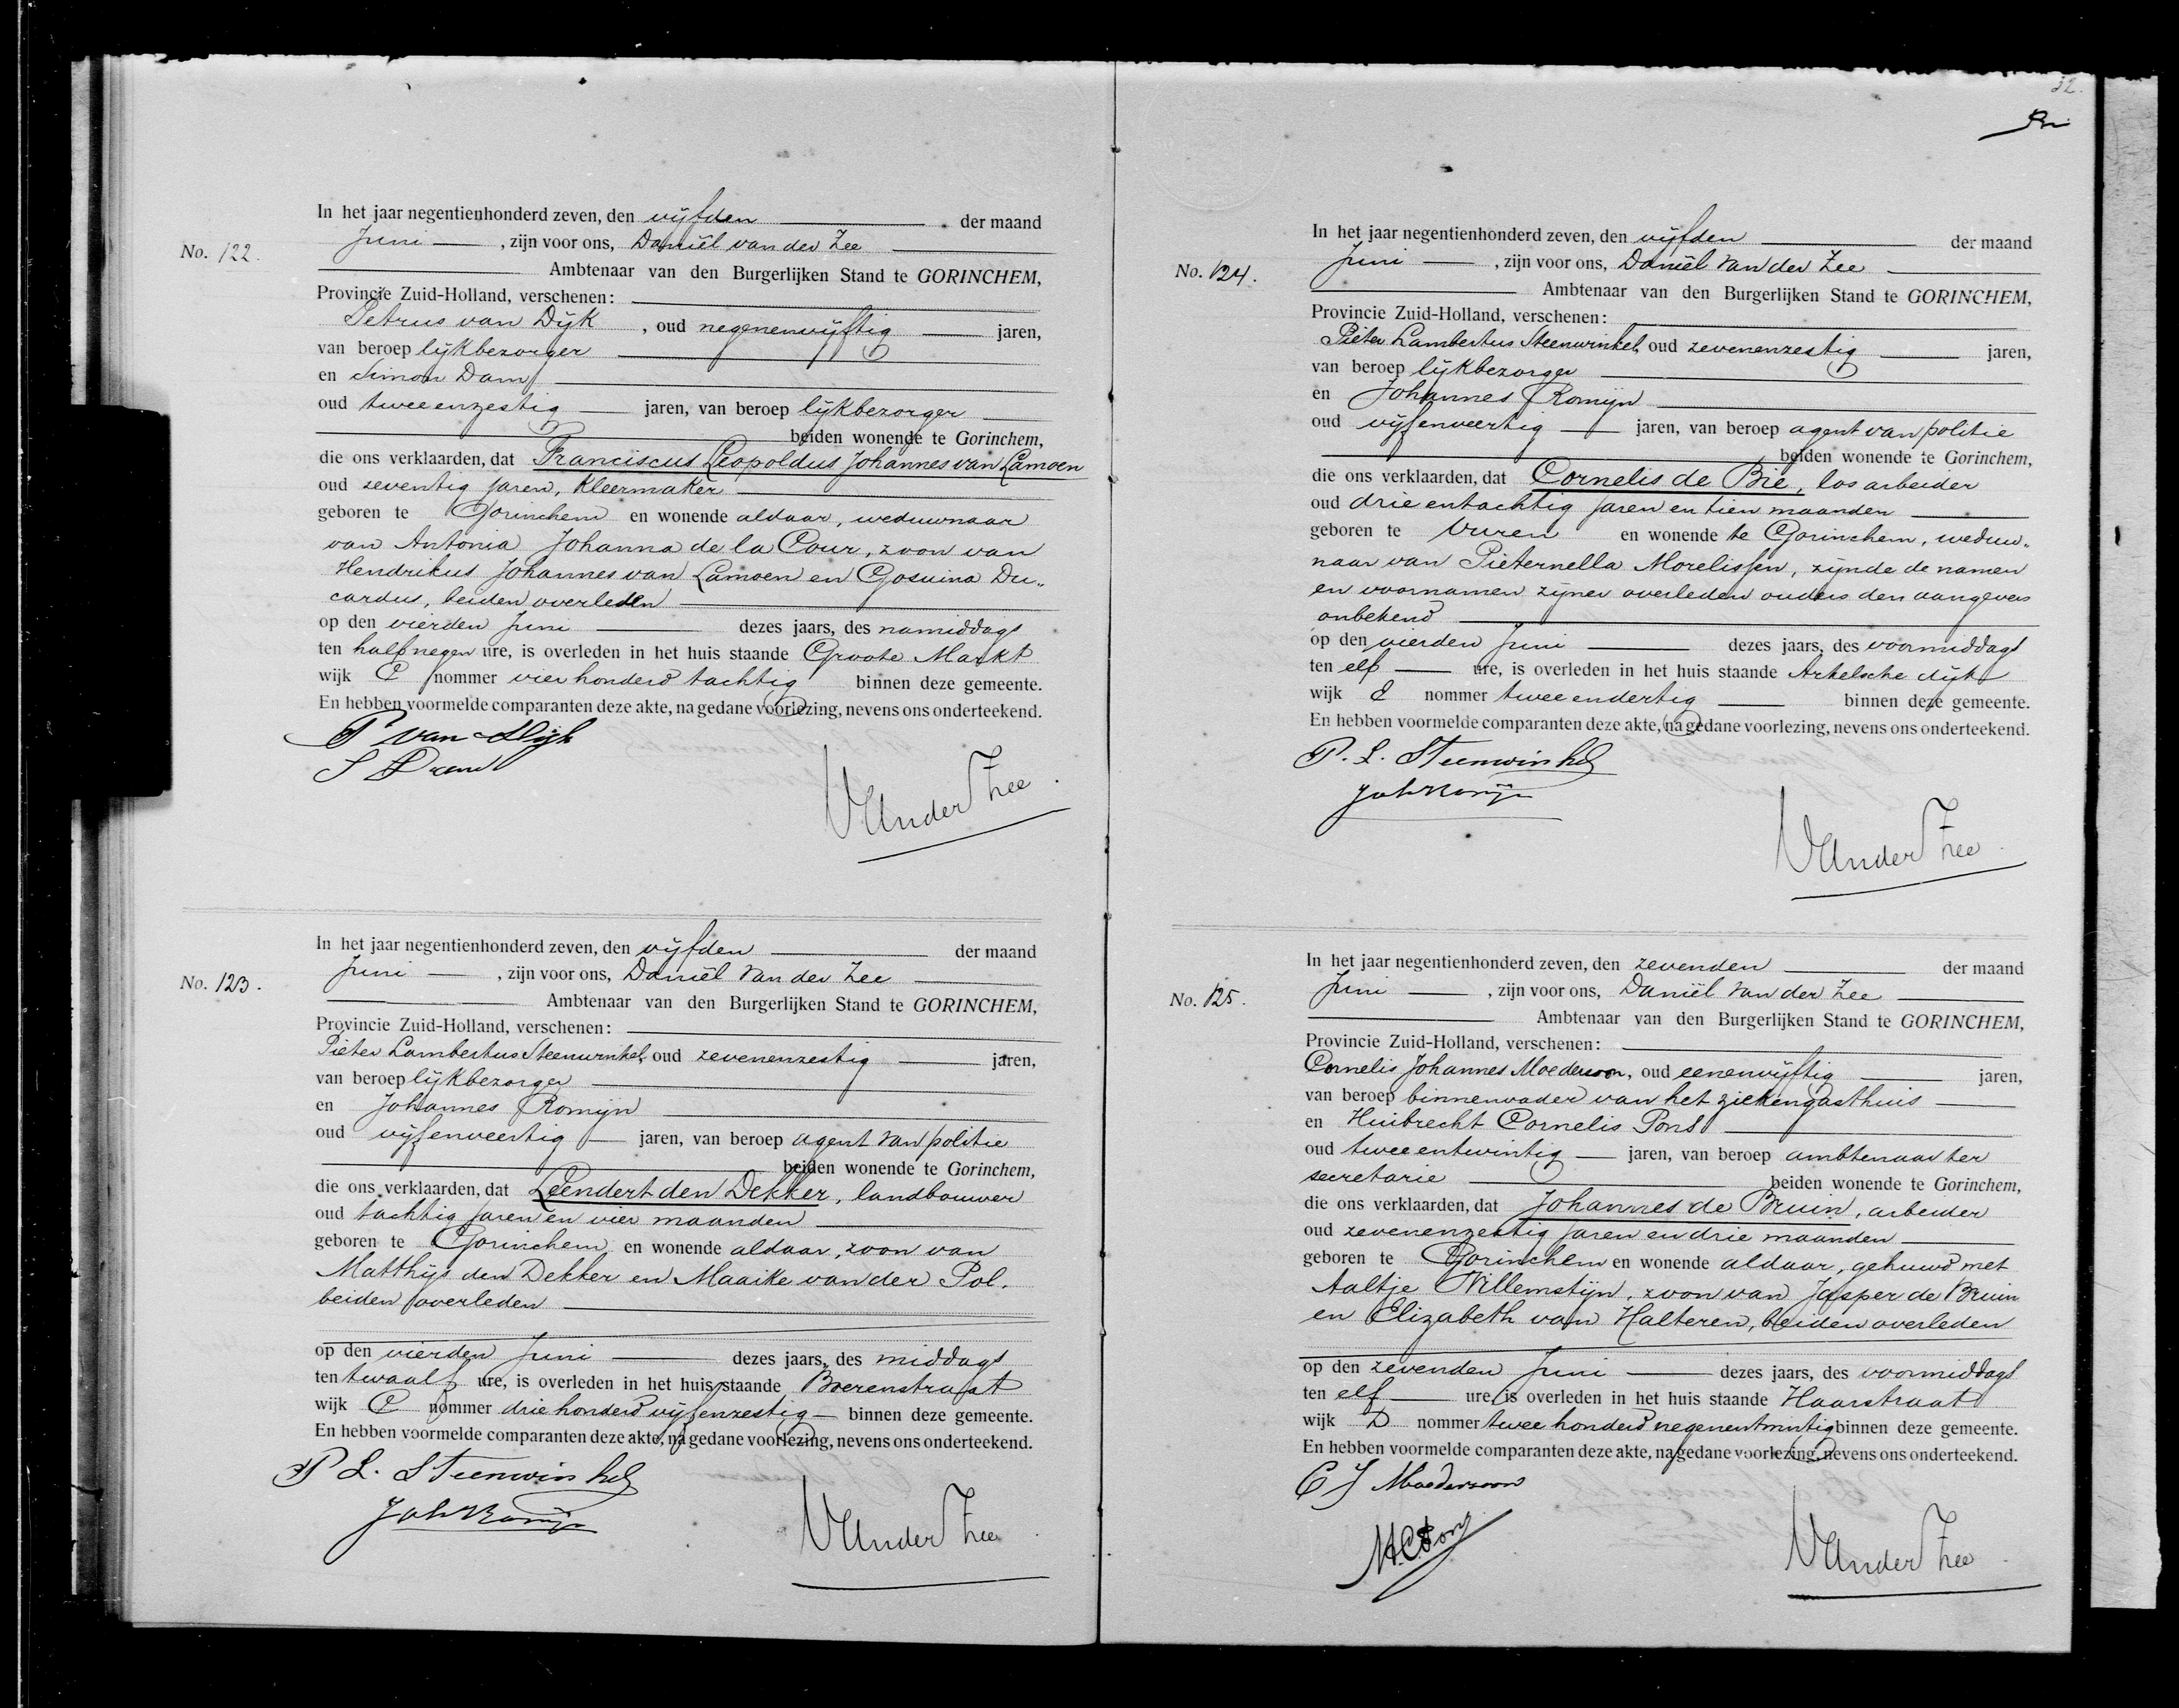 32.
No. 122.
In het jaar negentienhonderd zeven, den vijfden der maand
Juni, zijn voor ons, Daniël van der Zee
Ambtenaar van den Burgerlijken Stand te GORINCHEM,
Provincie Zuid-Holland, verschenen:
Petrus van Dijk, oud negenenvijftig jaren,
van beroep lijkbezorger
en Simon Dam
oud tweeenzestig jaren, van beroep lijkbezorger
beiden wonende te Gorinchem,
die ons verklaarden, dat Franciscus Leopoldus Johannes van Lamoen
oud zeventig jaren, kleermaker
geboren te Gorinchem en wonende aldaar, weduwnaar
van Antonia Johanna de la Cour, zoon van
Hendrikus Johannes van Lamoen en Gosuina Du„
cardus, beiden overleden
op den vierden Juni dezes jaars, des namiddags
ten half negen ure, is overleden in het huis staande Groote Markt
wijk C nommer vierhonderd tachtig binnen deze gemeente.
En hebben voormelde comparanten deze akte, na gedane voorlezing, nevens ons onderteekend.
P van Dijk
S Dam
VanderZee
No. 123.
In het jaar negentienhonderd zeven, den vijfden der maand
Juni, zijn voor ons, Daniël van der Zee
Ambtenaar van den Burgerlijken Stand te GORINCHEM,
Provincie Zuid-Holland, verschenen:
Pieter Lambertus Steenwinkel, oud zevenenzestig jaren,
van beroep lijkbezorger
en Johannes Romijn
oud vijfenveertig jaren, van beroep agent van politie
beiden wonende te Gorinchem,
die ons verklaarden, dat Leendert den Dekker, landbouwer
oud tachtig jaren en vier maanden
geboren te Gorinchem en wonende aldaar, zoon van
Matthijs den Dekker en Maaike van der Pol,
beiden overleden
op den vierden Juni dezes jaars, des middags
ten twaalf ure, is overleden in het huis staande Boerenstraat
wijk C nommer driehonderd vijfenzestig binnen deze gemeente.
En hebben voormelde comparanten deze akte, na gedane voorlezing, nevens ons onderteekend.
P L. Steenwinkel
Joh Romijn
VanderZee
No. 124.
In het jaar negentienhonderd zeven, den vijfden der maand
Juni, zijn voor ons, Daniël van der Zee
Ambtenaar van den Burgerlijken Stand te GORINCHEM,
Provincie Zuid-Holland, verschenen:
Pieter Lambertus Steenwinkel, oud zevenenzestig jaren,
van beroep lijkbezorger
en Johannes Romijn
oud vijfenveertig jaren, van beroep agent van politie
beiden wonende te Gorinchem,
die ons verklaarden, dat Cornelis de Bie, los arbeider
oud drieentachtig jaren en tien maanden
geboren te Vuren en wonende te Gorinchem, weduw„
naar van Pieternella Morelissen, zijnde de namen
en voornamen zijner overleden ouders den aangevers
onbekend
op den vierden Juni dezes jaars, des voormiddags
ten elf ure, is overleden in het huis staande Arkelsche dijk
wijk E nommer tweeendertig binnen deze gemeente.
En hebben voormelde comparanten deze akte, na gedane voorlezing, nevens ons onderteekend.
P. L. Steenwinkel
Joh Romijn
VanderZee
No. 125.
In het jaar negentienhonderd zeven, den zevenden der maand
Juni, zijn voor ons, Daniël van der Zee
Ambtenaar van den Burgerlijken Stand te GORINCHEM,
Provincie Zuid-Holland, verschenen:
Cornelis Johannes Moederzoon, oud eenenvijftig jaren,
van beroep binnenvader van het ziekengasthuis
en Huibrecht Cornelis Pons
oud tweeentwintig jaren, van beroep ambtenaar ter
secretarie beiden wonende te Gorinchem,
die ons verklaarden, dat Johannes de Bruin, arbeider
oud zevenenzestig jaren en drie maanden
geboren te Gorinchem en wonende aldaar, gehuwd met
Aaltje Willemstijn, zoon van Jasper de Bruin
en Elizabeth van Halteren, beiden overleden
op den zevenden Juni dezes jaars, des voormiddags
ten elf ure, is overleden in het huis staande Haarstraat
wijk D nommer tweehonderd negenentwintig binnen deze gemeente.
En hebben voormelde comparanten deze akte, na gedane voorlezing, nevens ons onderteekend.
C J Moederzoon
H.C. Pons
VanderZee